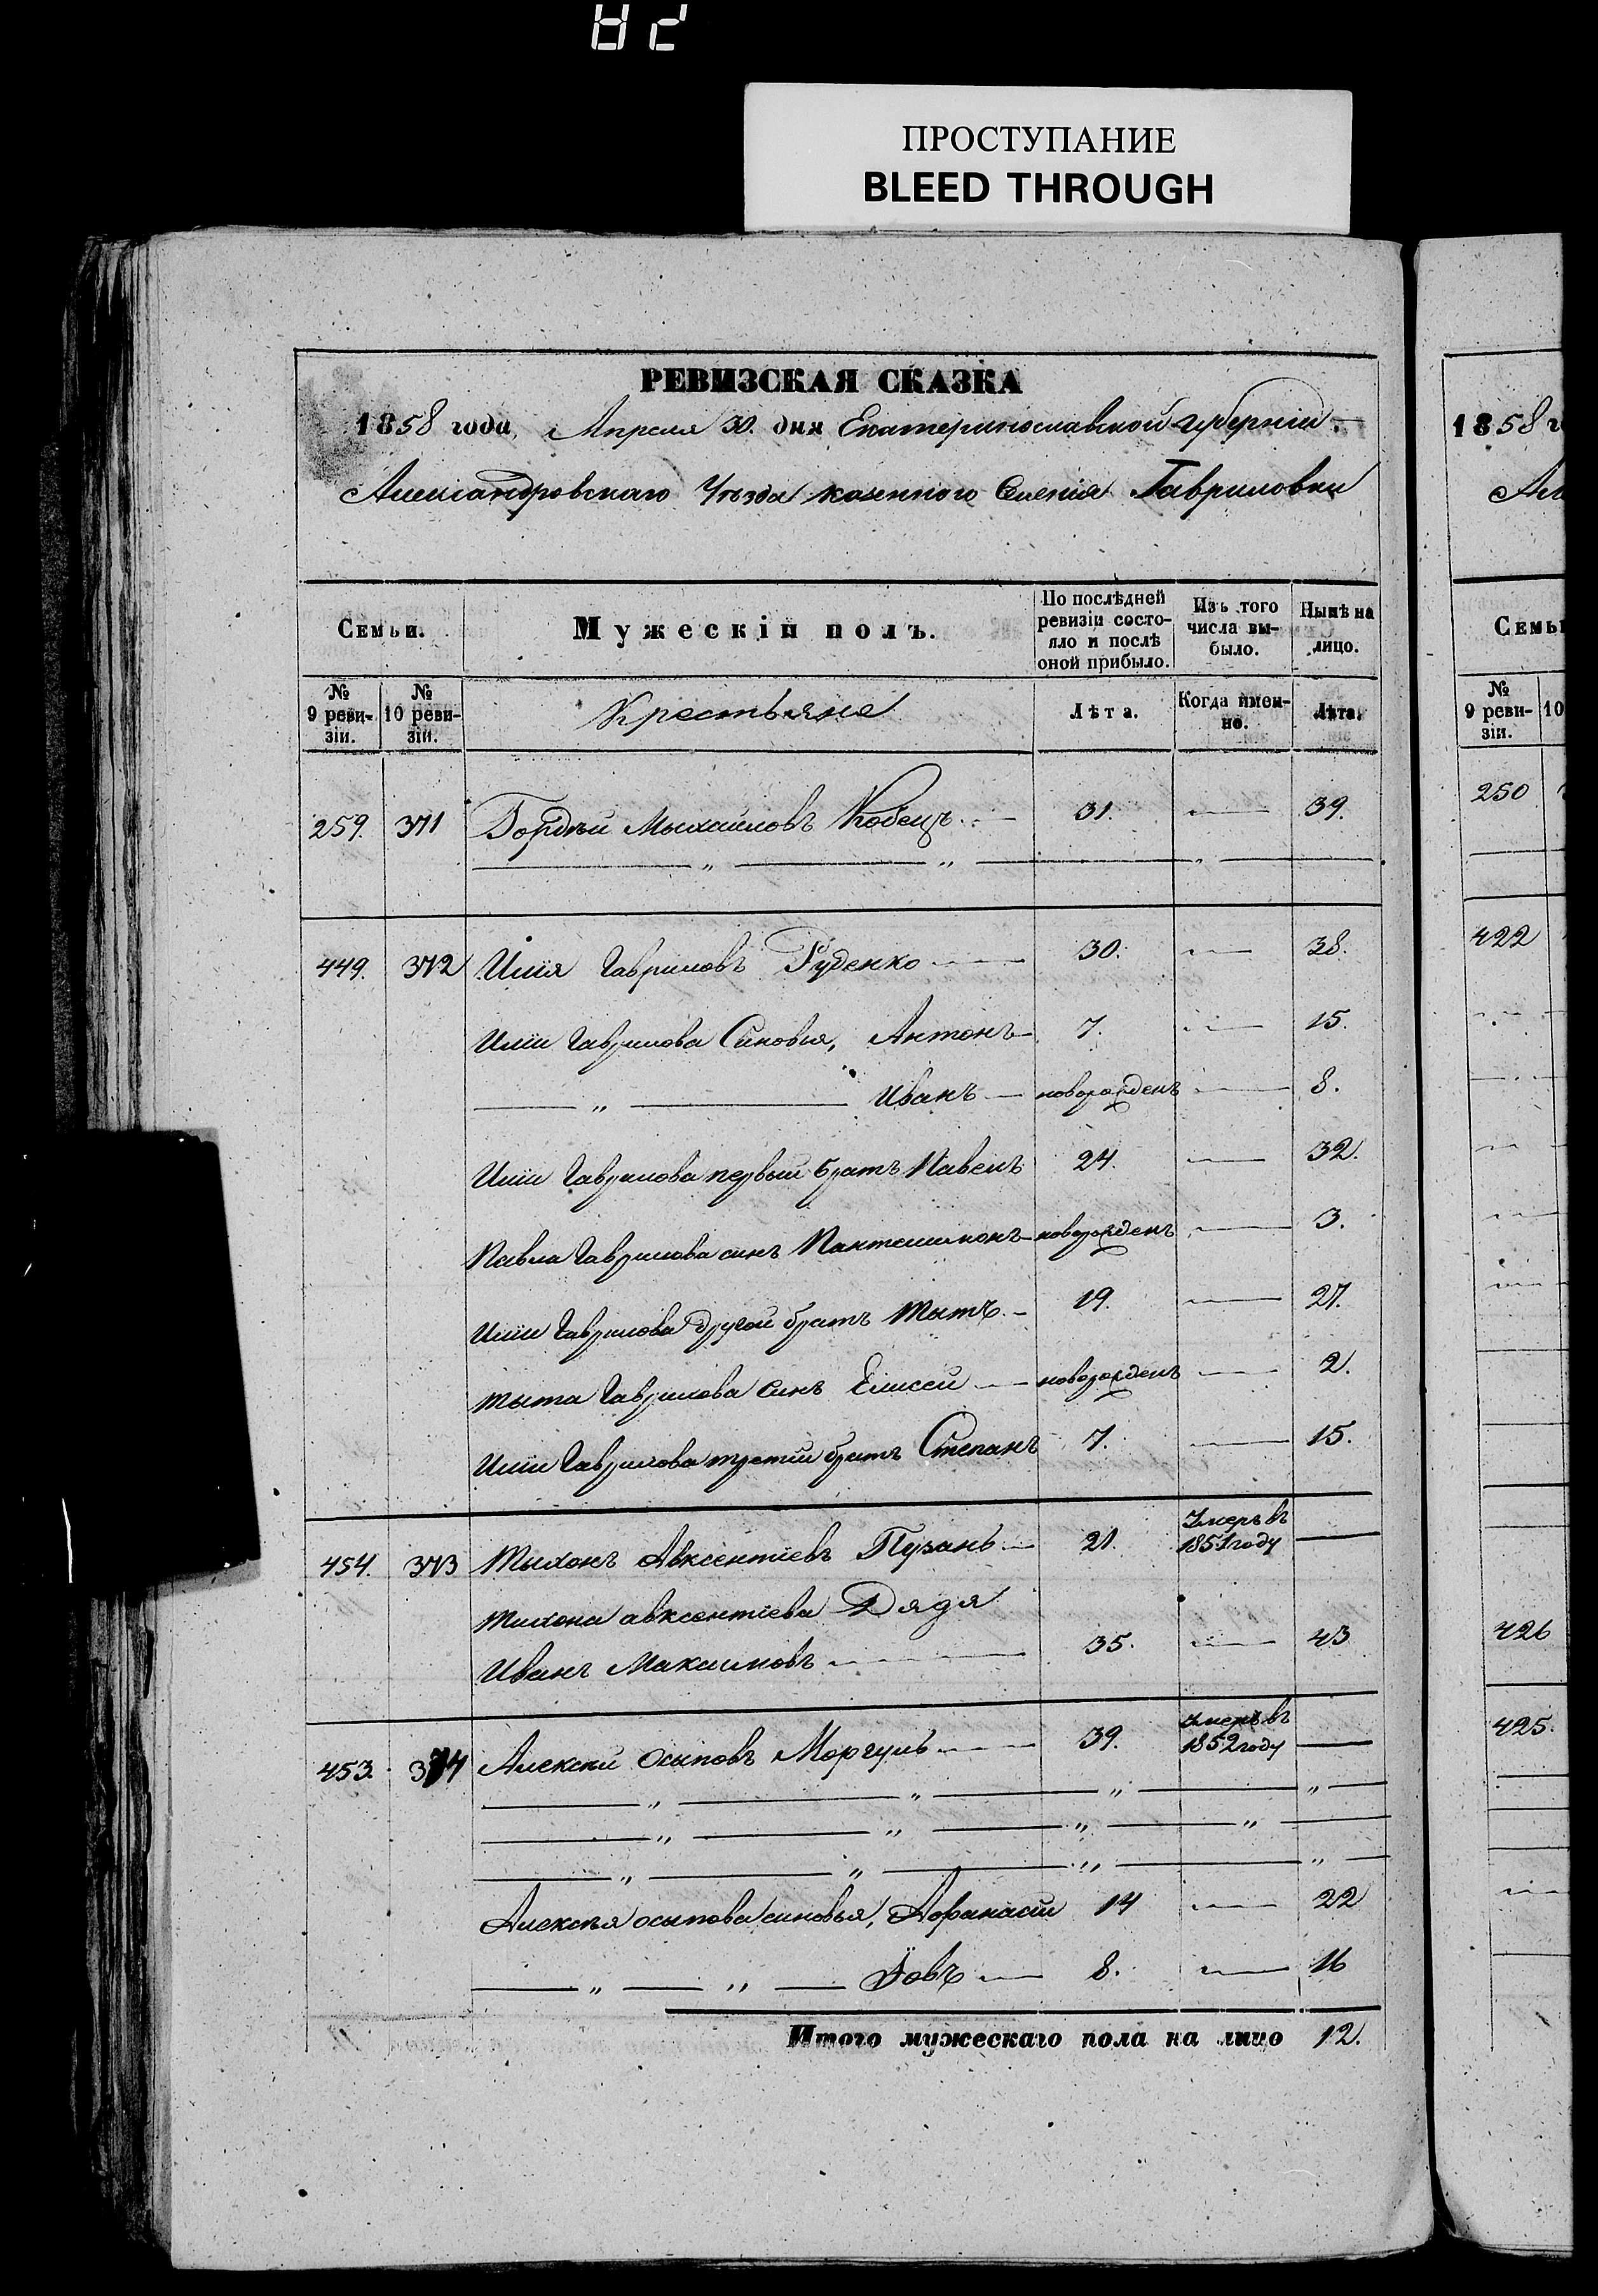 82
ПРОСТУПАНИЕ
BLEED THROUGH
РЕВИЗСКАЯ СКАЗКА
1858 года, Апреля 30. дня Екатеринославской губерніи
Александровскаго Уѣзда казенного Селенія Гавриловки
Семьи.
Мужескій полъ.
По послѣдней ревизіи состояло и послѣ оной прибыло.
Изъ того числа выбыло.
Нынѣ на лицо.
№ 9 ревизіи.
№ 10 ревизіи.
Крестьяне
Лѣта.
Когда именно.
Лѣта.
259. 371 Гордѣй Мыхайловъ Кобецъ 31. 39.
449. 372 Илія Гавриловъ Руденко 30. 38.
Иліи Гаврилова Синовья, Антонъ 7. 15.
„ Иванъ новорожденъ 8.
Иліи Гаврилова первый братъ Павелъ 24. 32.
Павла Гаврилова синъ Пантелимонъ новорожденъ 3.
Иліи Гаврилова другой братъ Тытъ 19. 27.
Тыта Гаврилова синъ Елисей новорожденъ 2.
Иліи Гаврилова третій братъ Степанъ 7. 15.
454. 373 Тыхонъ Авксентіевъ Пузанъ 21. Умеръ въ 1851 году
Тихона авксентіева Дядя
Иванъ Максимовъ 35. 43
453. 374 Алексѣй Осыповъ Моргуль 39. Умеръ въ 1852 году
Алексѣя осыпова синовья, Афанасій 14 22
„ „ Іовъ 8. 16
Итого мужескаго пола на лицо 12.
1858
Семьи
№ 9 ревизіи.
10
250
422
426
425.